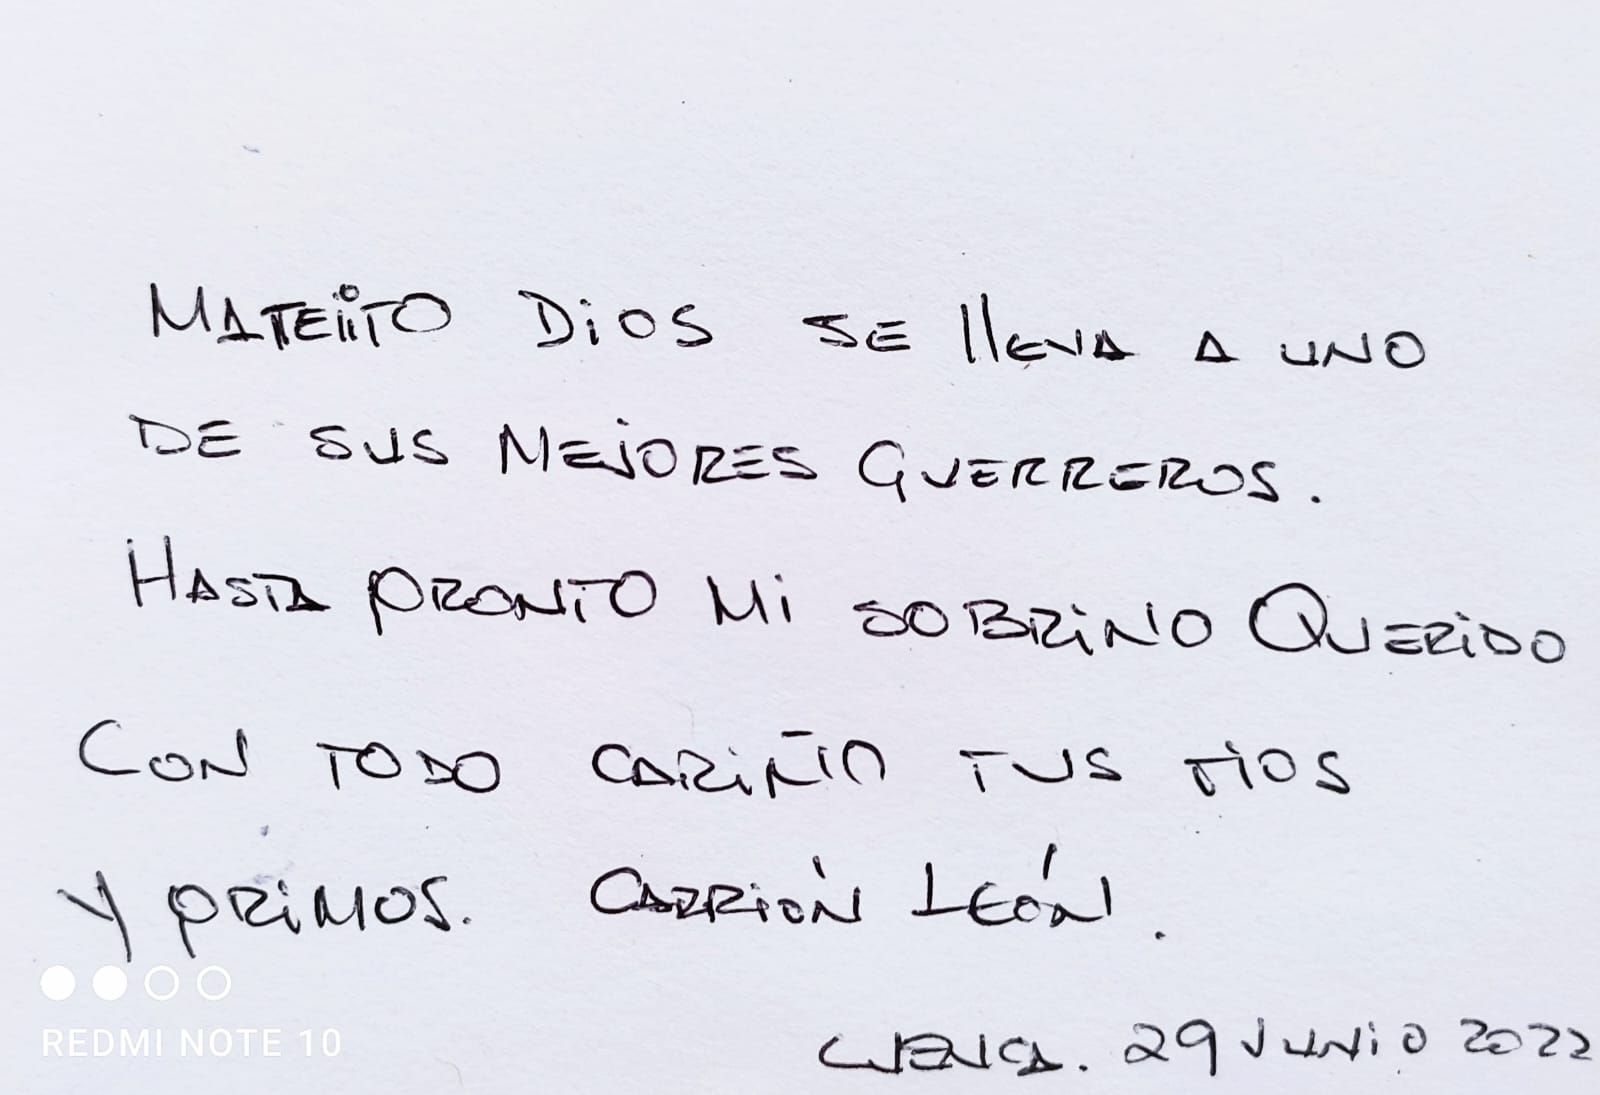 MATEiiTO DiOS SE llEVA A UNO
DE SUS MEJORES GUERREROS.
HASTA PRONTO Mi SOBRiNO QUERiDO
CON TODO CARiÑO TUS TÍOS
Y PRiMOS. CARRIÓN LEÓN.
CUENCA. 29 JUNiO 2022
REDMI NOTE 10